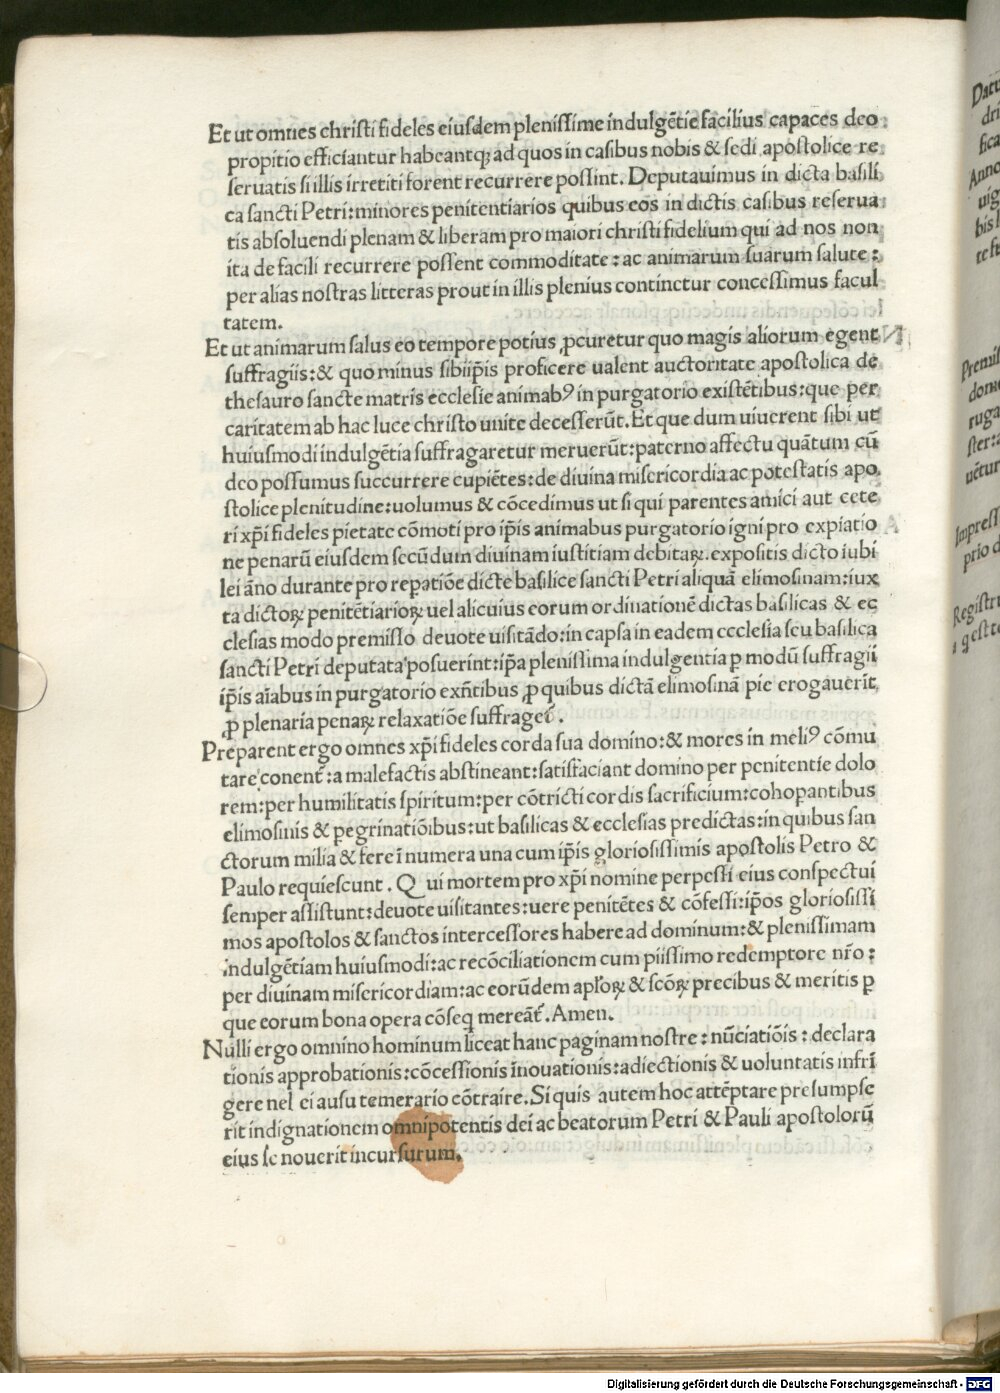 Et ut omnes christi fideles eiusdem plenissime indulgẽtie facilius capaces deo
propitio efficiantur habeantq; ad quos in casibus nobis & sedi apostolice re
seruatis si illis irretiti forent recurrere possint. Deputauimus in dicta basili
ca sancti Petri: minores penitentiarios quibus eos in dictis casibus reserua
tis absoluendi plenam & liberam pro maiori christi fidelium qui ad nos non
ita de facili recurrere possent commoditate: ac animarum suarum salute:
per alias nostras litteras prout in illis plenius continetur concessimus facul
tatem.
Et ut animarum salus eo tempore potius ꝓcuretur quo magis aliorum egent
suffragiis: & quo minus sibiip̃is proficere ualent auctoritate apostolica de
thesauro sancte matris ecclesie animabꝰ in purgatorio existẽtibus: que per
caritatem ab hac luce christo unite decesserũt. Et que dum uiuerent sibi ut
huiusmodi indulgẽtia suffragaretur meruerũt: paterno affectu quãtum cũ
deo possumus succurrere cupiẽtes: de diuina misericordia ac potestatis apo
stolice plenitudine: uolumus & cõcedimus ut si qui parentes amici aut cete
ri xp̃i fideles pietate cõmoti pro ip̃is animabus purgatorio igni pro expiatio
ne penarũ eiusdem secũdum diuinam iustitiam debitaꝝ. expositis dicto iubi
lei ãno durante pro repatiõe dicte basilice sancti Petri aliquã elimosinam: iux
ta dictoꝝ penitẽtiarioꝝ uel alicuius eorum ordinationẽ dictas basilicas & ec
clesias modo premisso deuote uisitãdo: in capsa in eadem ecclesia seu basilica
sancti Petri deputata posuerint: ip̃a plenissima indulgentia ꝑ modũ suffragii
ip̃is aĩabus in purgatorio exñtibus ꝓ quibus dictã elimosinã pie erogauerit̃
ꝓ plenaria penaꝝ relaxatiõe suffraget̃.
Preparent ergo omnes xp̃i fideles corda sua domino: & mores in meliꝰ cõmu
tare conent̃: a malefactis abstineant: satisfaciant domino per penitentie dolo
rem: per humilitatis spiritum: per cõtricti cordis sacrificium: cohopantibus
elimosinis & pegrinatiõibus: ut basilicas & ecclesias predictas: in quibus san
ctorum milia & fere ĩnumera una cum ip̃is gloriosissimis apostolis Petro &
Paulo requiescunt. Qui mortem pro xp̃i nomine perpessi eius conspectui
semper assistunt: deuote uisitantes: uere penitẽtes & cõfessi: ip̃os gloriosissi
mos apostolos & sanctos intercessores habere ad dominum: & plenissimam
indulgẽtiam huiusmodi: ac recõciliationem cum piissimo redemptore nr̃o:
per diuinam misericordiam: ac eorũdem apl'oꝝ & scõꝝ precibus & meritis ꝑ
que eorum bona opera cõseq mereãt̃. Amen.
Nulli ergo omnino hominum liceat hanc paginam nostre: nũciatiõis: declara
tionis approbationis: cõcessionis ĩnouationis: adiectionis & uoluntatis infrĩ
gere nel ei ausu temerario cõtraire. Si quis autem hoc attẽptare presumpse
rit indignationem omnipotentis dei ac beatorum Petri & Pauli apostolorũ
eius se nouerit incursurum.
Premis
Impress
Registru
Digitalisierung gefördert durch die Deutsche Forschungsgemeinschaft - DFG